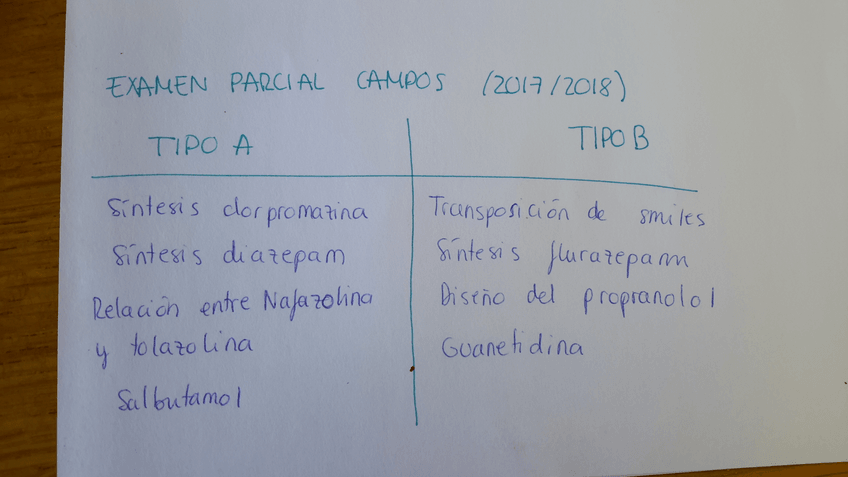 EXAMEN PARCIAL CAMPOS (2017/2018)
TIPO A
Síntesis clorpromazina
Síntesis diazepam
Relación entre Nafazolina
y tolazolina
Salbutamol
TIPO B
Transposición de smiles
Síntesis flurazepam
Diseño del propranolol
Guanetidina